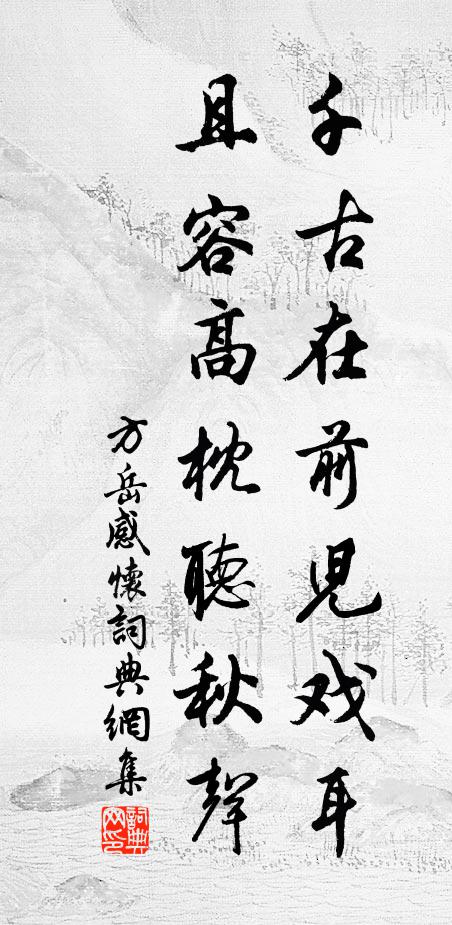 千古在前兒戏耳
且容高枕聽秋聲
方岳感懷詞典網集
詞典网印